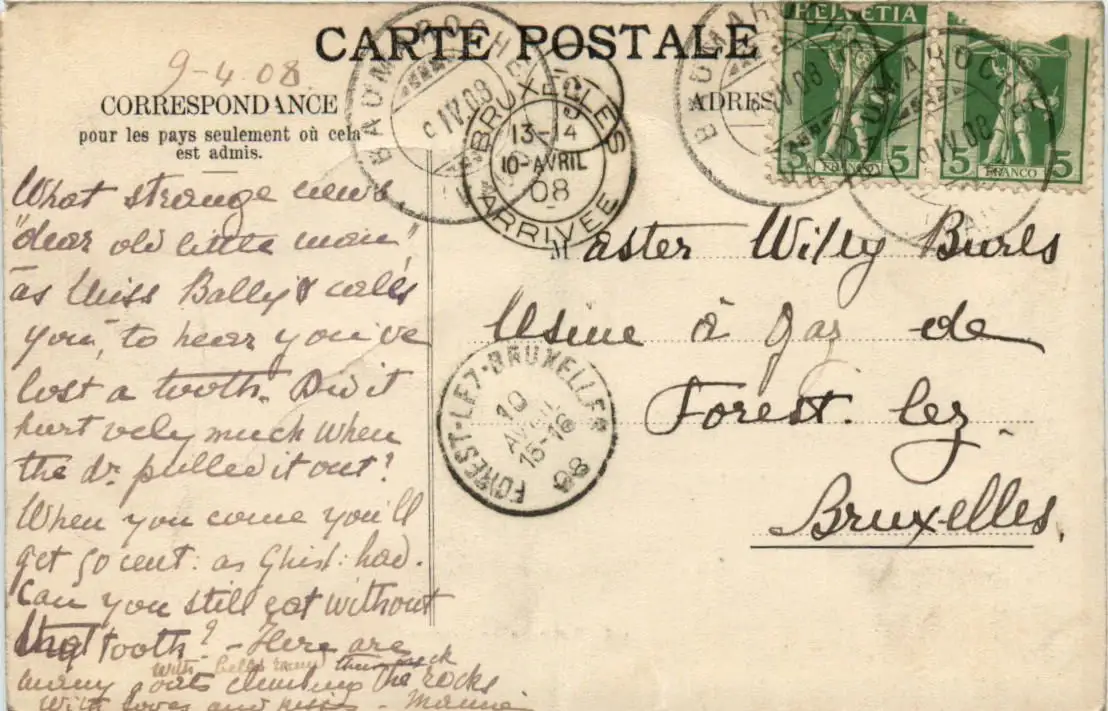 CARTE POSTALE
9-4.08
CORRESPONDANCE
pour les pays seulement où cela
est admis.
ADRES
BAUMAROCHE
9 IV.08
BRUXELLES
13-14
10-AVRIL
08
ARRIVÉE
BAUMAROCHE
IV.08
BAUMAROCHE
9 IV.08
HELVETIA
5 FRANCO 5
5 FRANCO 5
What strange news
"dear old little man",
as Miss Bally calls
you, to hear you've
lost a tooth. Did it
hurt vely much when
the dr. pulled it out?
When you come you'll
get 50 cent: as Ghisl: had.
Can you still eat without
that tooth? - Here are
many goats climbing the rocks
with bells round their neck
With loves and kisses -
Master Willy Burls
Usine à gaz de
Forest lez
Bruxelles.
FOREST-LEZ-BRUXELLES
10
AVRIL
15-16
08